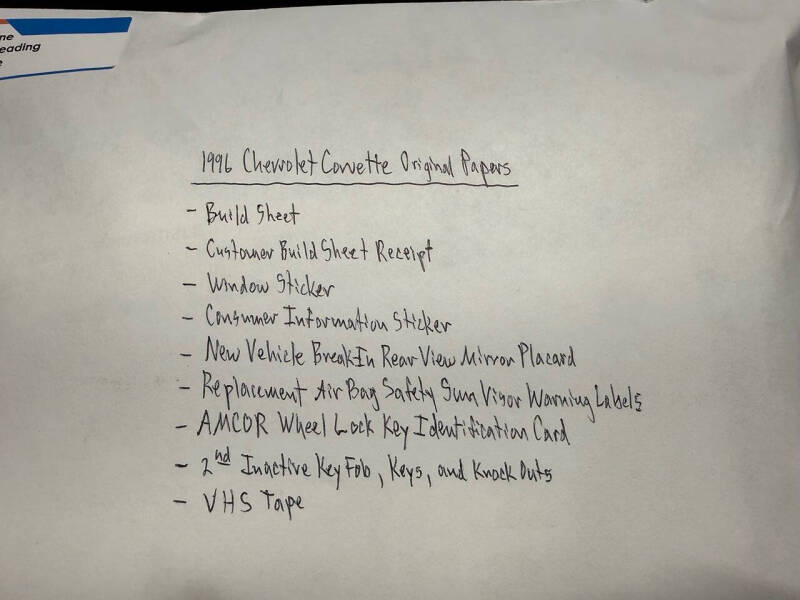 ne
eading
e
1996 Chevrolet Corvette Original Papers
- Build Sheet
- Customer Build Sheet Receipt
- Window Sticker
- Consumer Information Sticker
- New Vehicle Break-In Rear View Mirror Placard
- Replacement Air Bag Safety Sun Visor Warning Labels
- AMCOR Wheel Lock Key Identification Card
- 2nd Inactive Key Fob, Keys, and Knock Outs
- VHS Tape